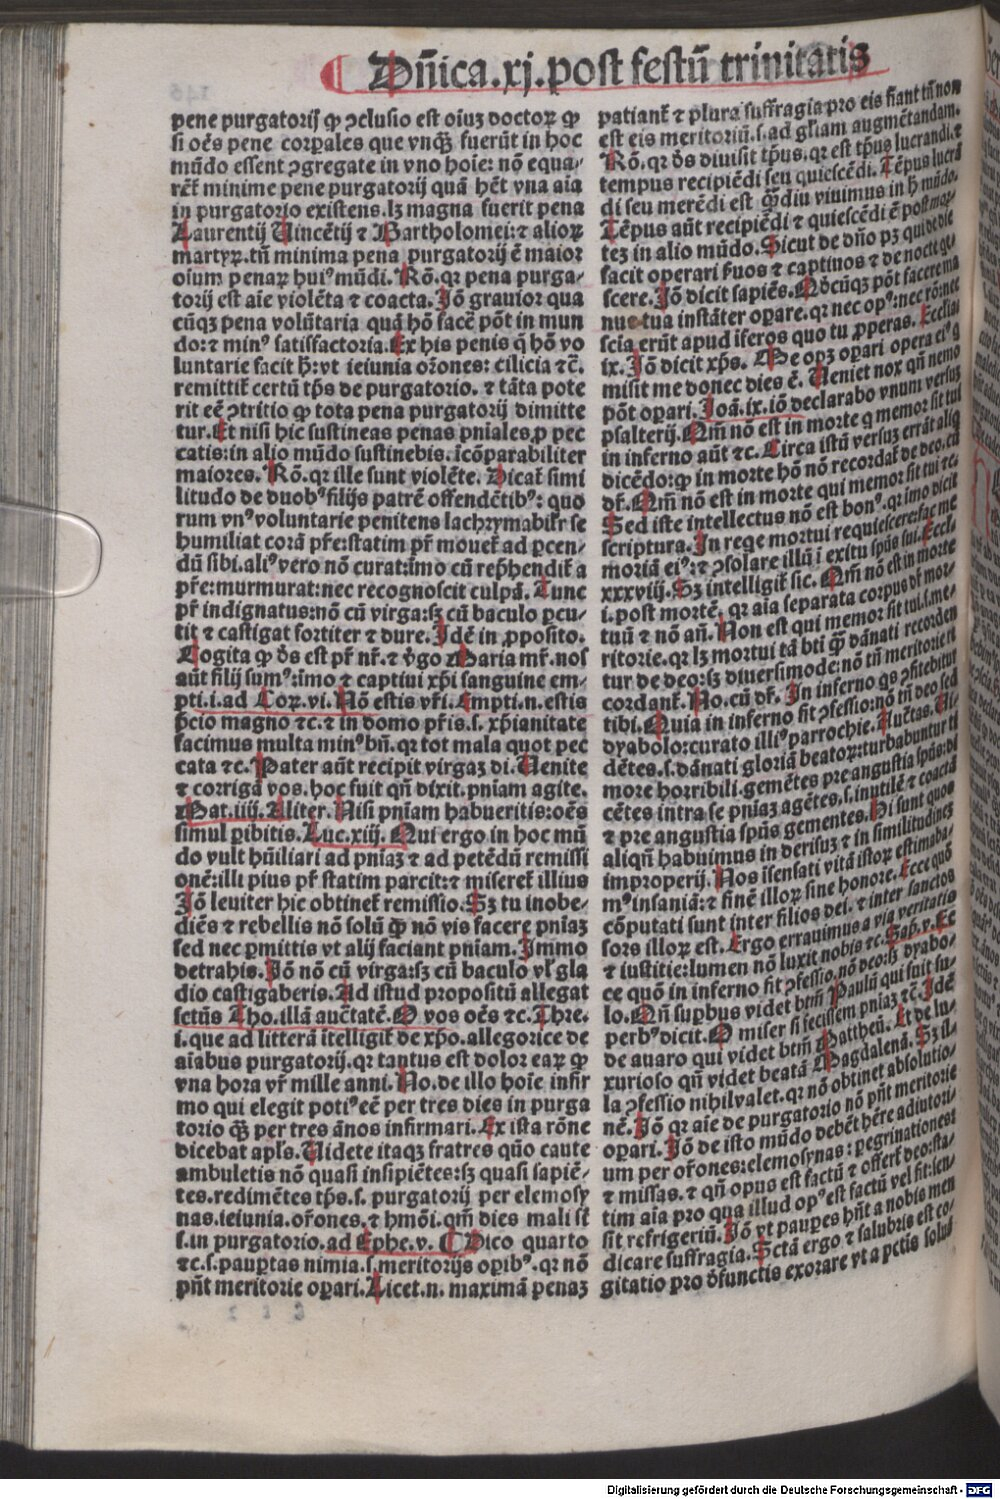 Dñica.xj.post festũ trinitatis
pene purgatorij ꝙ ↄclusio est oiuꝫ doctoꝝ ꝙ
si oẽs pene corꝑales que vnqꝫ̃ fuerũt in hoc
mũdo essent ↄgregate in vno hoie: nõ equa-
rẽt̃ minime pene purgatorij quã hẽt vna aĩa
in purgatorio existens.lꝫ magna fuerit pena
Laurentij Vincẽtij ⁊ Bartholomei:⁊ alioꝝ
martyꝝ.tñ minima pena purgatorij ẽ maior
oium penaꝝ huiꝰ mũdi. Rõ.qꝛ pena purga-
torij est aĩe violẽta ⁊ coacta.Iõ grauior qua
cũqꝫ pena volũtaria quã hõ facẽ põt in mun
do:⁊ minꝰ satisfactoria.Ex his penis q̃ hõ vo
luntarie facit h̃:vt ieiunia or̃ones: cilicia ⁊c̃.
remittit̃ certũ tp̃s de purgatorio. ⁊ tãta pote
rit eẽ ↄtritio ꝙ tota pena purgatorij dimitte
tur.Et nisi hic sustineas penas pniales ꝓ pec
catis:in alio mũdo sustinebis.ĩcõparabiliter
maiores. Rõ.qꝛ ille sunt violẽte. Dicat̃ simi
litudo de duobꝰ filijs patrẽ offendẽtibꝰ: quo
rum vnꝰ voluntarie penitens lachrymabilr̃ se
humiliat corã pr̃e:statim pr̃ mouet̃ ad ꝑcen-
dũ sibi.aliꝰ vero nõ curat:imo cũ rep̃hendit̃ a
pr̃e:murmurat:nec recognoscit culpã. Tunc
pr̃ indignatus:nõ cũ virga:sꝫ cũ baculo ꝑcu-
tit ⁊ castigat fortiter ⁊ dure.Idẽ in ꝓposito.
Cogita ꝙ d̃s est pr̃ nr̃.⁊ v̓go Maria mr̃.nos
aũt filij sumꝰ:imo ⁊ captiui xp̃i sanguine em-
pti.i.ad Coꝝ.vi.Nõ estis vr̃i.Empti.n.estis
p̃cio magno ⁊c.⁊ in domo pr̃is.s. xp̃ianitate
facimus multa minꝰ bñ.qꝛ tot mala quot pec
cata ⁊c. Pater aũt recipit virgaꝫ di. Venite
⁊ corrigã vos.hoc fuit qñ dixit.pniam agite.
Mat.iiij.Aliter. Nisi pniam habueritis:oẽs
simul ꝑibitis.Luc.xiij. Qui ergo in hoc mũ
do vult hũiliari ad pniaꝫ ⁊ ad petẽdũ remissi
onẽ:illi pius pr̃ statim parcit:⁊ miseret̃ illius
Iõ leuiter hic obtinet̃ remissio.Sꝫ tu inobe-
diẽs ⁊ rebellis nõ solũ qꝫ̃ nõ vis facere pniaꝫ
sed nec ꝑmittis vt alij faciant pniam.Immo
detrahis.Iõ nõ cũ virga:sꝫ cũ baculo vl̃ gla
dio castigaberis.Ad istud propositũ allegat
sctũs Tho.illã auctatẽ.O vos oẽs ⁊c.Thre.
i.que ad litterã ĩtelligit̃ de xp̃o.allegorice de
aĩabus purgatorij.qꝛ tantus est dolor eaꝝ ꝙ
vna hora vr̃ mille anni. No.de illo hoĩe infir
mo qui elegit potiꝰ eẽ per tres dies in purga
torio qꝫ̃ per tres ãnos infirmari. Ex ista rõne
dicebat apl̃s.Videte itaqꝫ fratres quõ caute
ambuletis nõ quasi insipiẽtes:sꝫ quasi sapiẽ-
tes.redimẽtes tp̃s.s. purgatorij per elemosy
nas.ieiunia.or̃ones.⁊ hmõi.qm̃ dies mali st̃
s.in purgatorio.ad Ephe.v. Dico quarto
⁊c.s.pauꝑtas nimia.s.meritorijs oꝑibꝰ.qꝛ nõ
pñt meritorie oꝑari.Licet.n. maximã penaꝫ
patiant̃ ⁊ plura suffragia pro eis fiant tñ non
est eis meritoriũ.s.ad gl̃iam augmẽtandam.
Rõ.qꝛ d̃s diuisit tp̃us.qꝛ est tp̃us lucrandi.⁊
tempus recipiẽdi seu quiescẽdi. Tẽpus lucrã
di seu merẽdi est qꝫ̃diu viuimus in h̃ mũdo.
Tẽpus aũt recipiẽdi ⁊ quiescẽdi ẽ post mor-
teꝫ in alio mũdo.Sicut de dño pꝫ qui de die
facit operari s̃uos ⁊ captiuos ⁊ de nocte qe-
scere.Iõ dicit sapiẽs.Qõcũqꝫ põt facere ma
nus tua instãter oꝑare.qꝛ nec opꝰ:nec rõ:nec
scĩa erũt apud ĩferos quo tu ꝓperas. Eccliai
ix.Iõ dicit xp̃s. Me opꝫ oꝑari opera eiꝰ q
misit me donec dies ẽ. Veniet nox qñ nemo
põt oꝑari.Ioã.ix.iõ declarabo vnum versuꝫ
psalterij.Qm̃ nõ est in morte q memor sit tui
in inferno aũt ⁊c.Circa istũ versuꝫ errãt aliq
dicẽdo:ꝙ in morte hõ nõ recordat̃ de deo.cũ
dr̃.Qm̃ nõ est in morte qui memor sit tui ⁊c.
Sed iste intellectus nõ est bonꝰ.qꝛ imo dicit
scriptura.In rege mortui requiescere:fac me
moriã eiꝰ:⁊ ↄsolare illũ ĩ exitu spũs sui.Eccl.
xxxviij.Sꝫ intelligit̃ sic.Qm̃ nõ est in morte
i.post mortẽ. qꝛ aĩa separata corpus dr̃ mor-
tuũ ⁊ nõ añ.Non est qui memor sit tui.s.me-
ritorie.qꝛ lꝫ mortui tã bti qꝫ̃ dãnati recorden
tur de deo:sꝫ diuersimode:nõ tñ meritorie re
cordant̃.No.cũ dr̃. In inferno qs ↄfitebitur
tibi.Quia in inferno fit ↄfessio:nõ tñ deo sed
dyabolo:curato illiꝰ parrochie.Auctas.Vi-
dẽtes.s.dãnati gloriã beatoꝝ:turbabuntur ti
more horribili.gemẽtes pre angustia spũs:di
cẽtes intra se pniaꝫ agẽtes.s.inutilẽ ⁊ coactã
⁊ pre angustia spũs gementes.Hi sunt quos
aliqñ habuimus in derisuꝫ ⁊ in similitudineꝫ
improperij. Nos ĩsensati vitã istoꝝ estimaba-
mꝰ insaniã:⁊ finẽ illoꝝ sine honore.Ecce quõ
cõputati sunt inter filios dei.⁊ inter sanctos
sors illoꝝ est. Ergo errauimus a via veritatis
⁊ iustitie:lumen nõ luxit nobis ⁊c.Sap̃.v.Ec
ce quõ in inferno fit ↄfessio.nõ deo:sꝫ dyabo-
lo.Qñ suꝑbus videt btm̃ Paulũ qui fuit su-
perbꝰ dicit.O miser si fecissem pniaꝫ ⁊c̃.Idẽ
de auaro qui videt btm̃ Mattheũ. Et de lu-
xurioso qñ videt beatã Magdalenã.Sꝫ il-
la ↄfessio nihil valet.qꝛ nõ obtinet absolutio-
nẽ.Iõ qꝛ aĩe de purgatorio nõ pñt meritorie
oꝑari.Iõ de isto mũdo debẽt hẽre adiutori-
um per or̃ones:elemosynas:ꝑegrinationes:
⁊ missas.⁊ qñ opus est factũ ⁊ offert̃ deo:sta-
tim aĩa pro qua illud opꝰ est factũ vel fit:sen-
sit refrigeriũ.Iõ vt pauꝑes hñt a nobis men
dicare suffragia.Sctã ergo ⁊ salubris est co-
gitatio pro d̓functis exorare vt a pctis solua
Digitalisierung gefördert durch die Deutsche Forschungsgemeinschaft - DFG